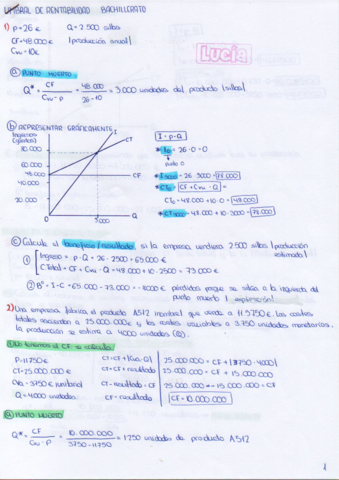 UMBRAL DE RENTABILIDAD BACHILLERATO
1) P=26€ Q=2.500 sillas
CF=48.000€ (producción anual)
Cvu=10€
Lucía
a) PUNTO MUERTO
Q* = CF / Cvu-P = 48.000 / 26-10 = 3.000 unidades del producto (sillas)
b) REPRESENTAR GRÁFICAMENTE
Ingresos
(gastos)
80.000
60.000
48.000
40.000
20.000
0
3.000
Q
I
CT
CF
I = p·Q
I0 = 26·0 = 0
punto 0
I3000 = 26·3000 = 78.000
CT0 = CF + Cvu·Q =
CT0 = 48.000 + 10·0 = 48.000
CT3000 = 48.000 + 10·3000 = 78.000
c) Calcula el beneficio/resultado si la empresa vendiera 2.500 sillas (producción estimada)
1) Ingreso = p·Q = 26·2500 = 65.000€
C.Total = CF + Cvu·Q = 48.000 + 10·2500 = 73.000€
2) Bº = I-C = 65.000 - 73.000 = -8000€ pérdidas porque se sitúa a la izquierda del
punto muerto
2) Una empresa fabrica el producto A512 que vende a 11.750€. Los costes
totales ascienden a 25.000.000€ y los costes variables a 3.750 unidades monetarias.
la producción se estima a 4000 unidades (Q).
No tenemos el CF, se calcula
P=11750€
CT=25.000.000€
Cvu=3750€ (unitario)
Q=4000 unidades
CT=CF+(Cvu·Q)
CT=CF+resultado
CT-resultado=CF
CF=resultado
25.000.000 = CF + (3750·4000)
25.000.000 = CF + 15.000.000
25.000.000 - 15.000.000 = CF
CF=10.000.000
a) PUNTO MUERTO
Q* = CF / Cvu-P = 10.000.000 / 3750-11750 = 1250 unidades de producto A512
1